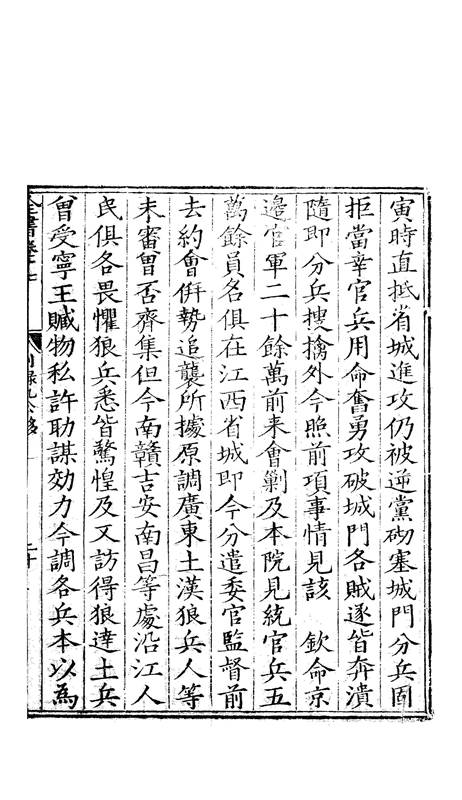 寅時直抵省城進攻仍被逆黨砌塞城門分兵固
拒當幸官兵用命奮勇攻破城門各賊遂皆奔潰
隨即分兵搜擒外今照前項事情見該　欽命京
邊官軍二十餘萬前來會剿及本院見統官兵五
萬餘員名俱在江西省城即今分遣委官監督前
去約會併勢追襲所據原調廣東土漢狼兵人等
未審曾否齊集但今南贛吉安南昌等處沿江人
民俱各畏懼狼兵悉皆驚惶及又訪得狼達土兵
曾受寧王贓物私許助謀効力今調各兵本以為
全書卷十七
別錄九公移
二十